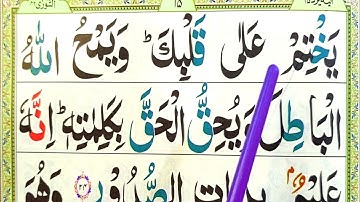 الشورى ١٥
يَخْتِمْ عَلٰى قَلْبِكَ ؕ وَيَمْحُ اللّٰهُ
الْبَاطِلَ وَيُحِقُّ الْحَقَّ بِكَلِمٰتِهٖ ؕ اِنَّهٗ
عَلِيْمٌۢ بِذَاتِ الصُّدُوْرِ ۝٢٤ وَهُوَ